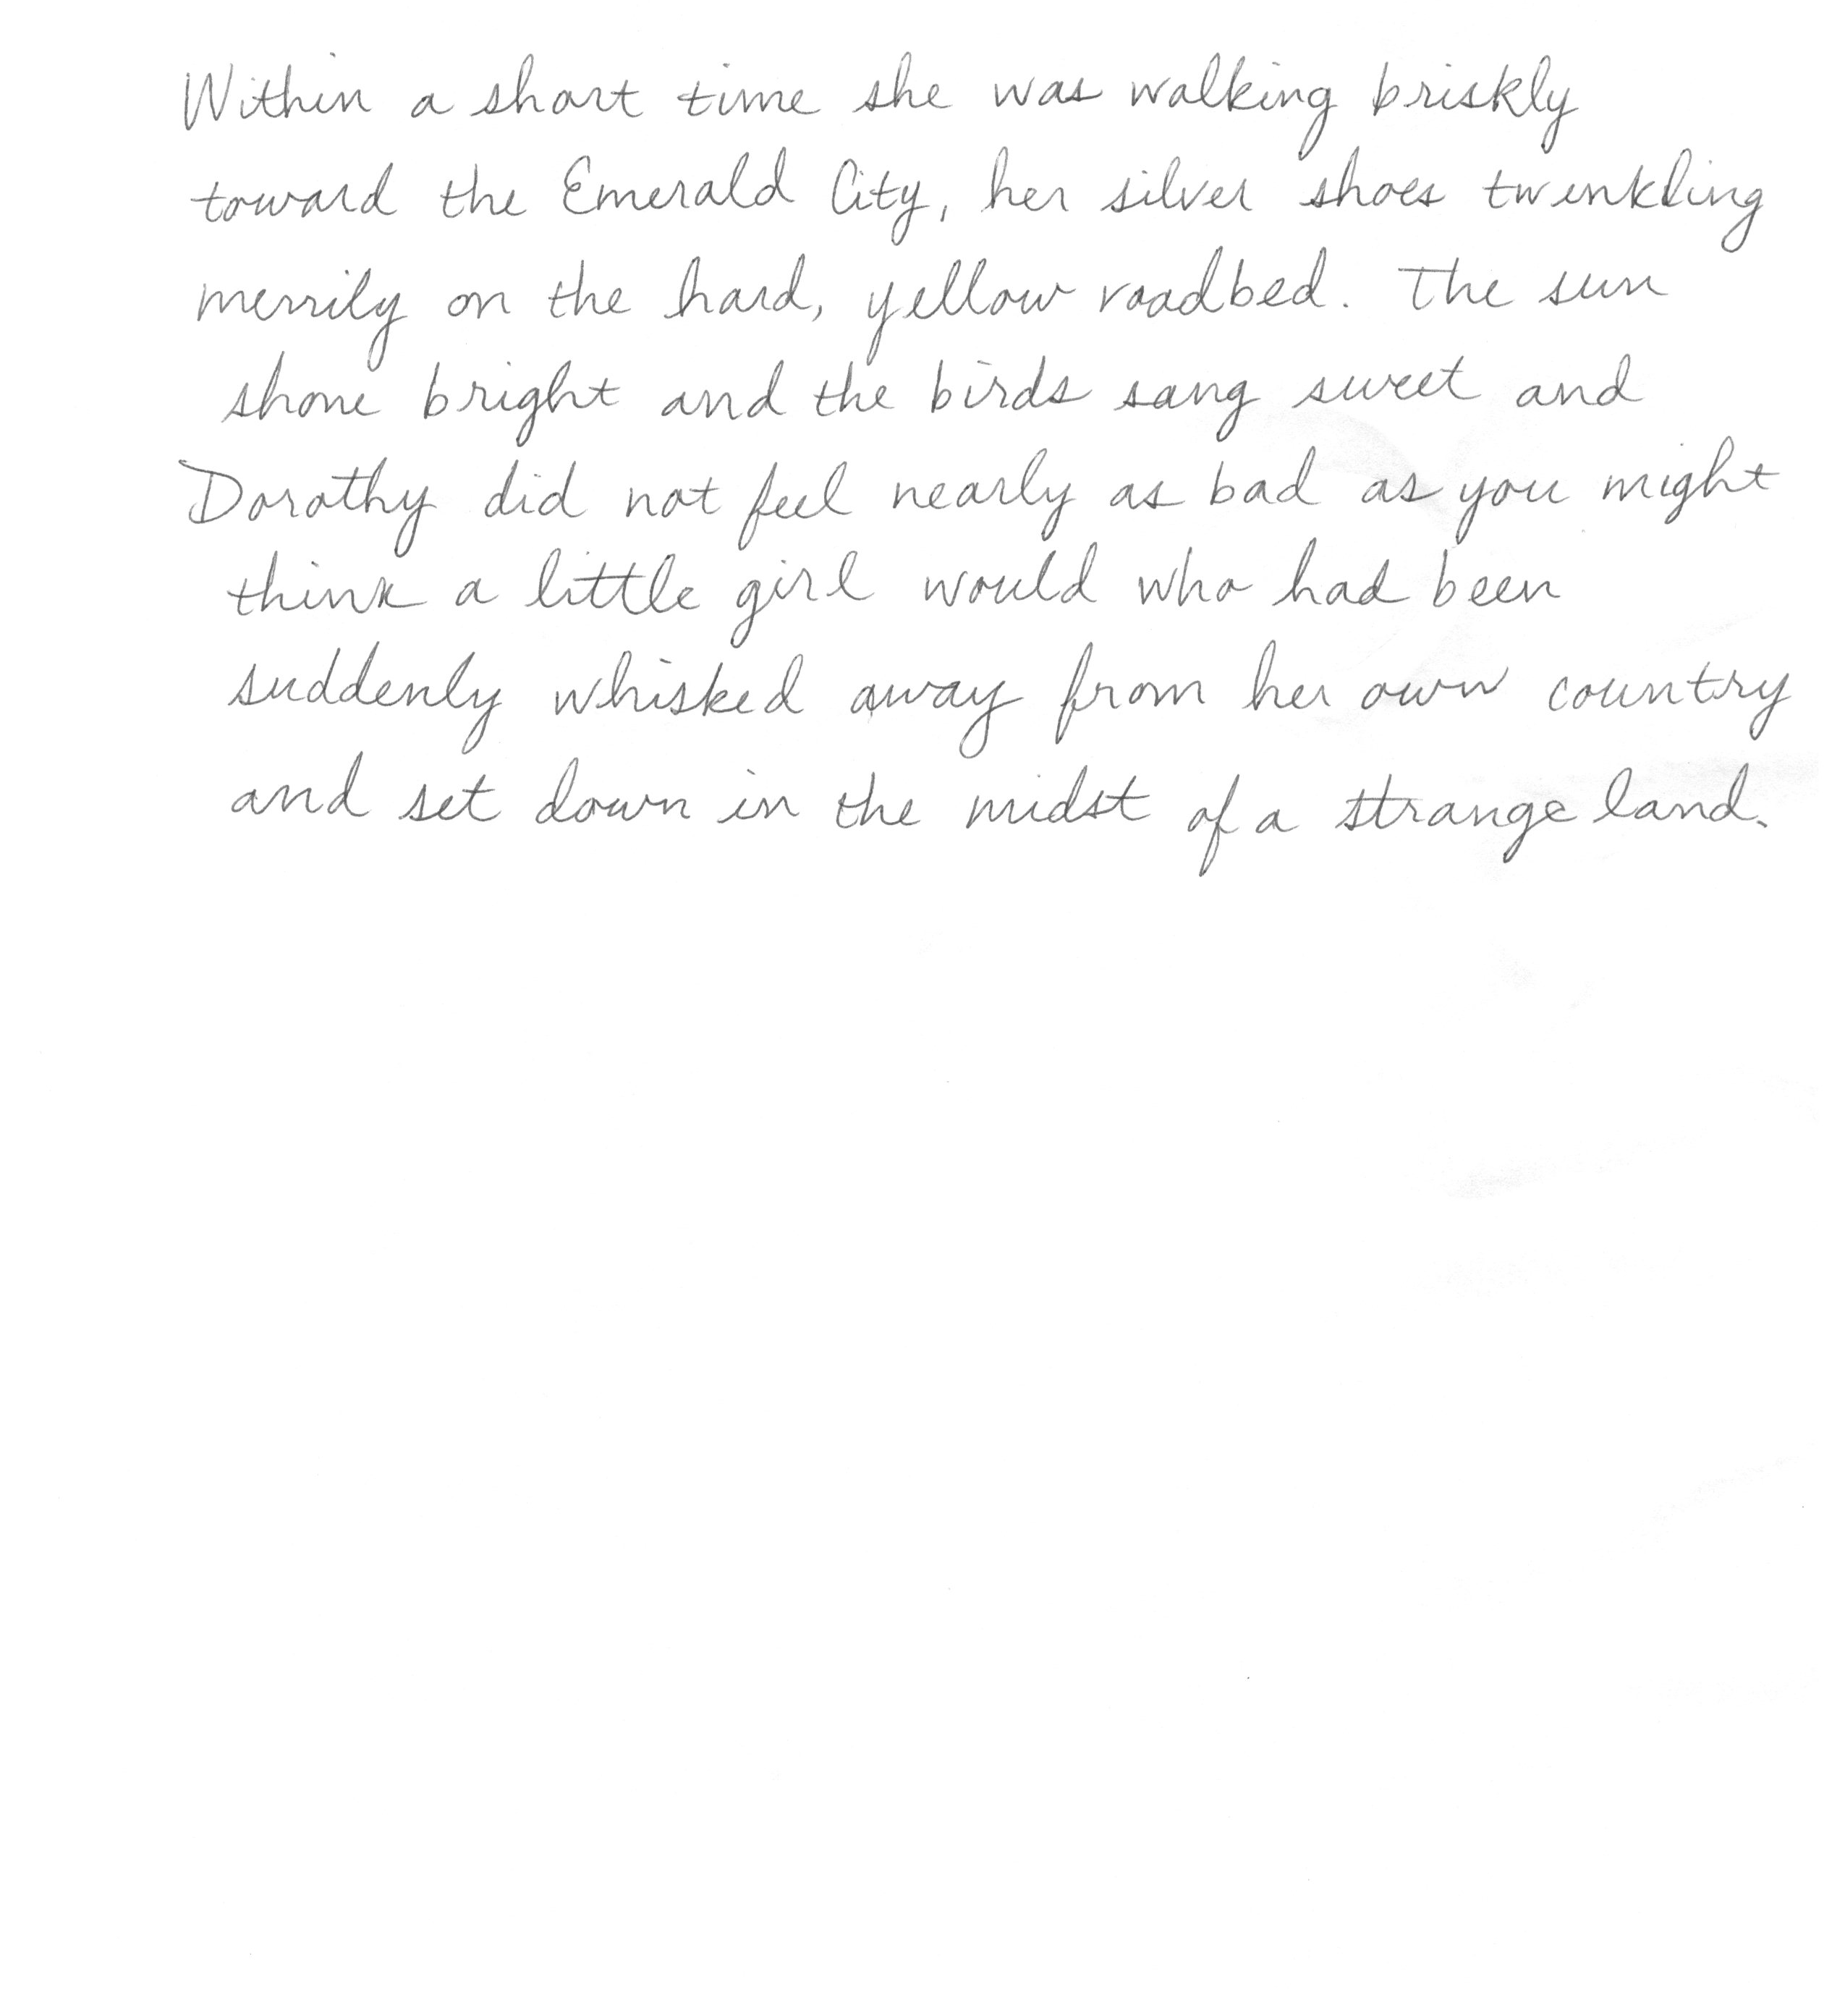 Within a short time she was walking briskly
toward the Emerald City, her silver shoes twinkling
merrily on the hard, yellow roadbed. The sun
shone bright and the birds sang sweet and
Dorothy did not feel nearly as bad as you might
think a little girl would who had been
suddenly whisked away from her own country
and set down in the midst of a strange land.